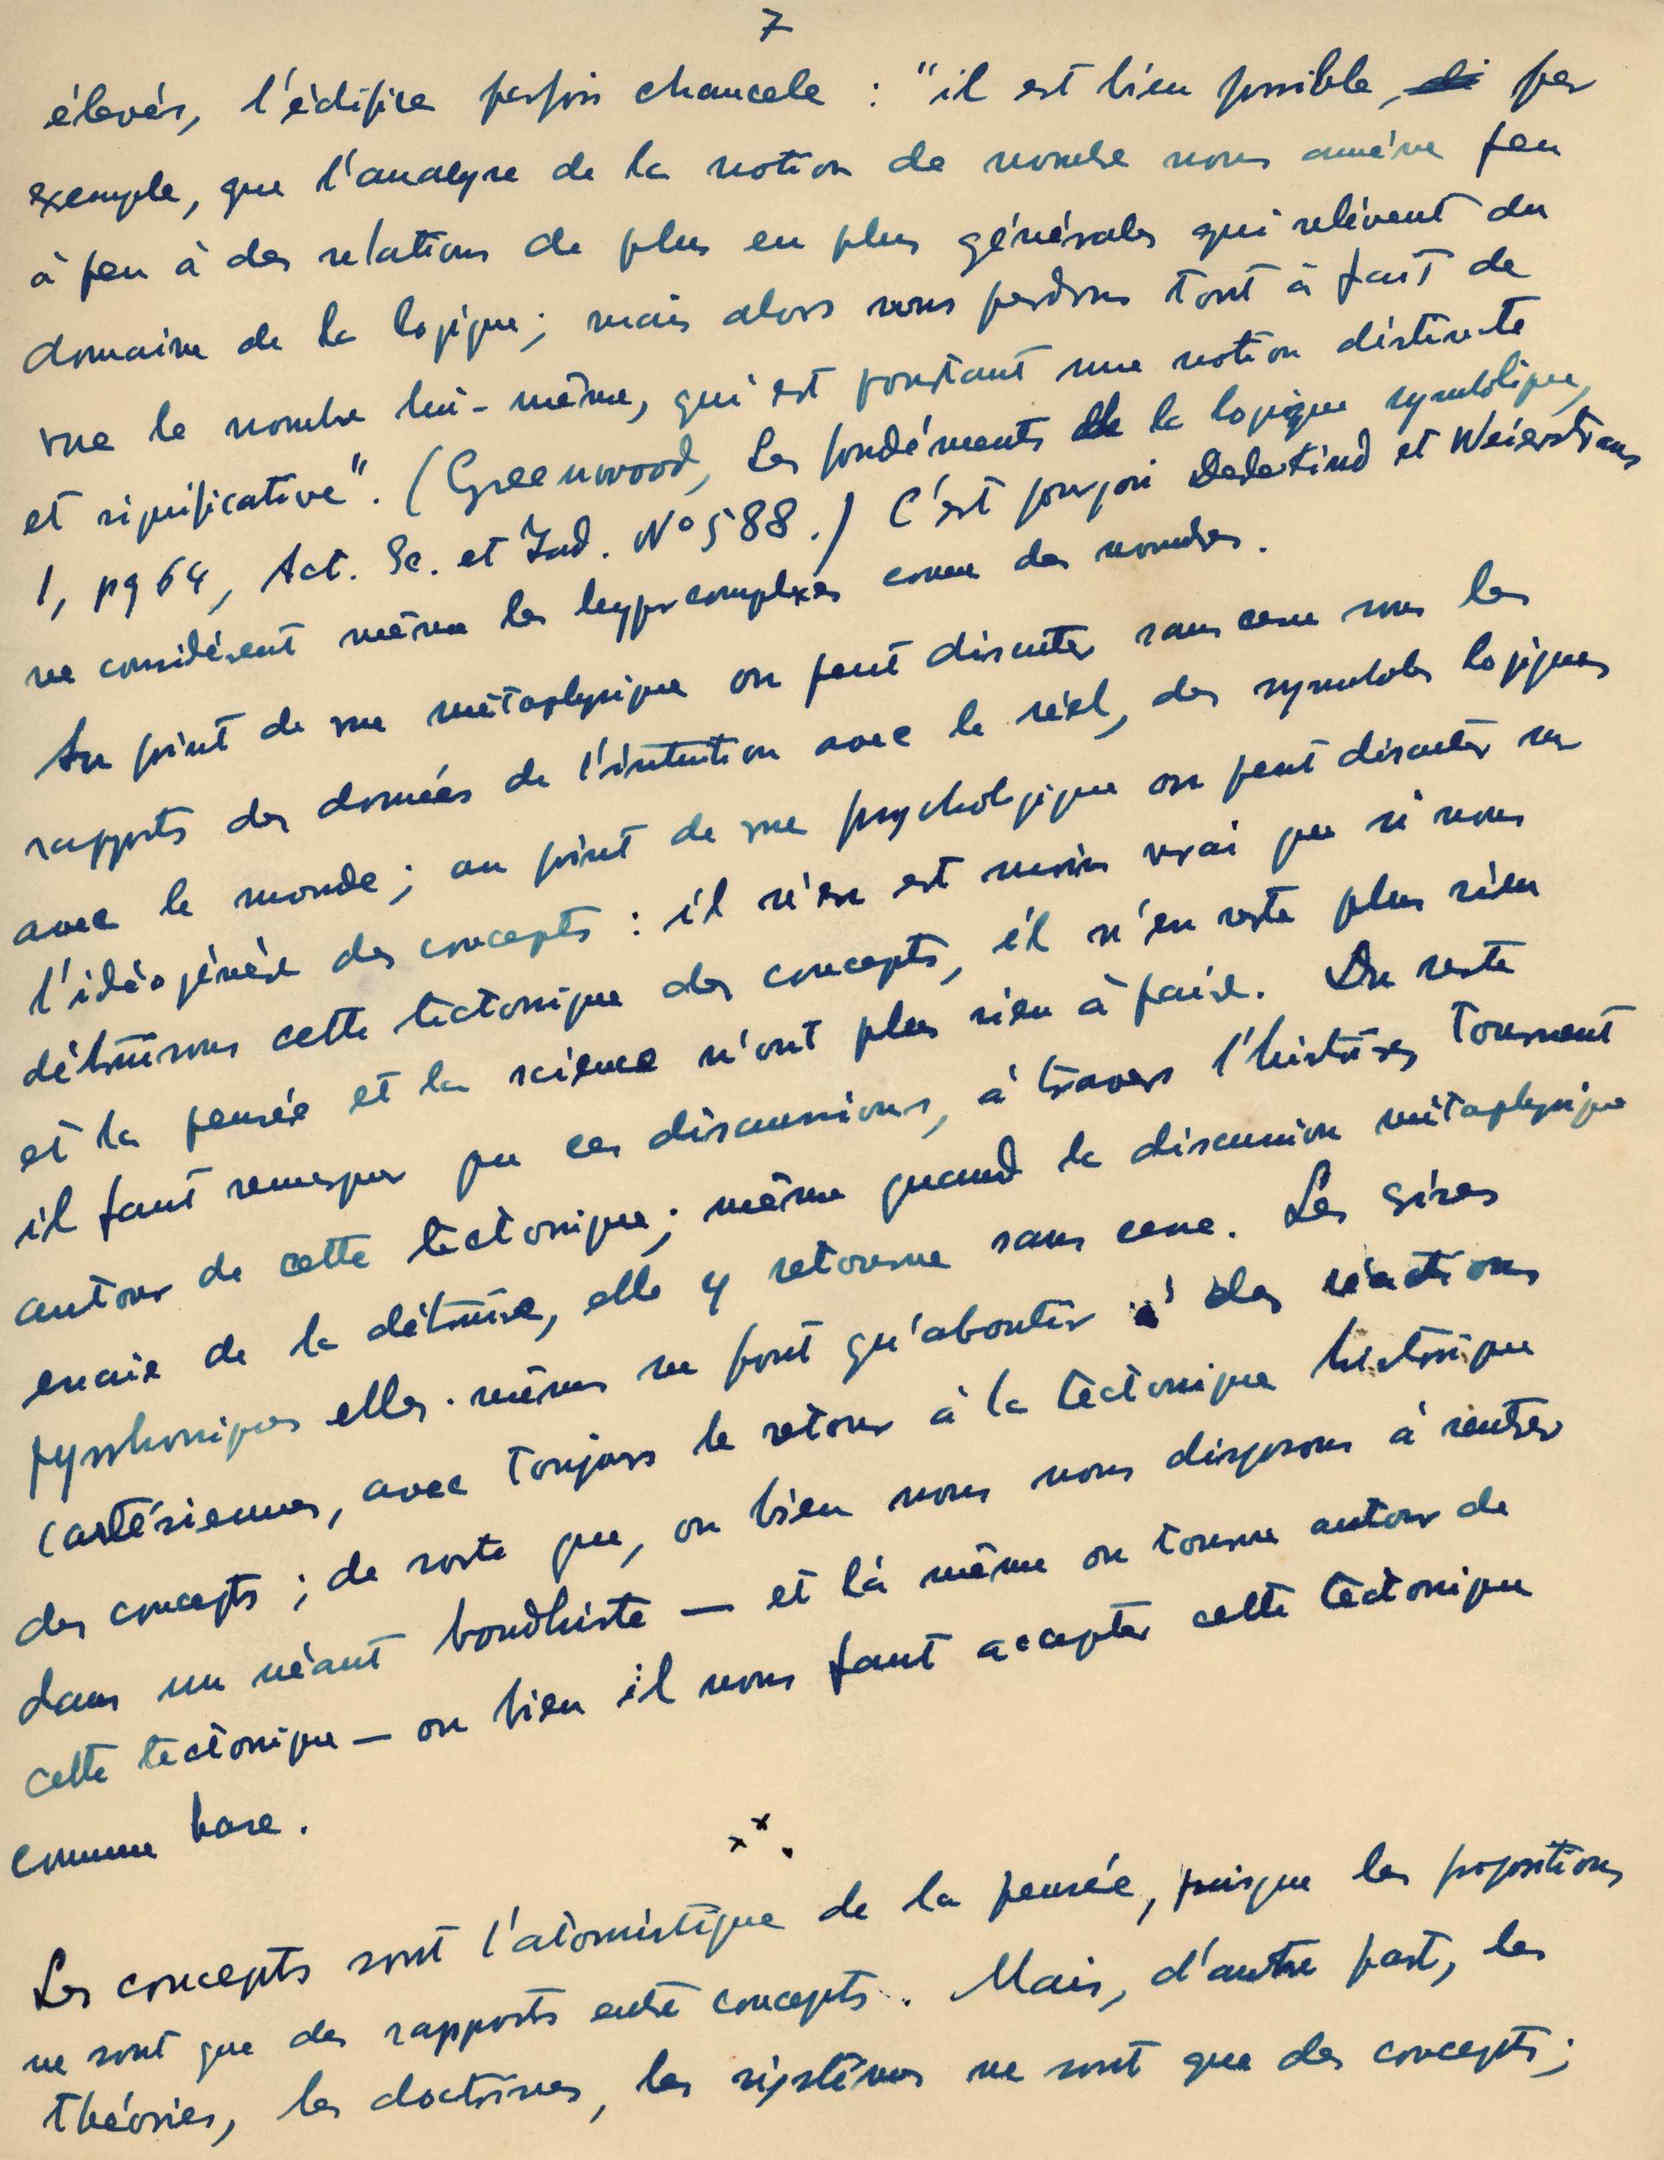 7
élevés, l'édifice parfois chancele : "il est bien possible, par
exemple, que l'analyse de la notion de nombre nous amène peu
à peu à des relations de plus en plus générales qui relèvent du
domaine de la logique; mais alors nous perdons tout à fait de
vue le nombre lui-même, qui est pourtant une notion distincte
et significative". (Greenwood, Les fondéments de la logique symbolique,
1, pg 64, Act. Sc. et Ind. Nº 588.) C'est pourquoi Dedekind et Weierstrass
ne considérent même les hypercomplexes comme des nombres.
Au point de vue métaphysique on peut discuter sans cesse sous les
rapports des données de l'intuition avec le réel, des symboles logiques
avec le monde; au point de vue psychologique on peut discuter sur
l'idéogénèse des concepts : il n'en est moins vrai que si nous
détruisons cette tectonique des concepts, il n'en reste plus rien
et la pensée et la science n'ont plus rien à faire. Du reste
il faut remarquer que ces discussions, à travers l'histoire, tournent
autour de cette tectonique; même quand la discussion métaphysique
essaie de la détruire, elle y retourne sans cesse. Les crises
pyrrhoniques elles-mêmes ne font qu'aboutir à des réactions
cartésiennes, avec toujours le retour à la tectonique historique
des concepts; de sorte que, ou bien nous nous disposons à rentrer
dans un néant boudhiste — et là même on tourne autour de
cette tectonique — ou bien il nous faut accepter cette tectonique
comme base.
x x .
Les concepts sont l'atomistique de la pensée, puisque les propositions
ne sont que des rapports entre concepts. Mais, d'autre part, les
théories, les doctrines, les sistèmes ne sont que des concepts;